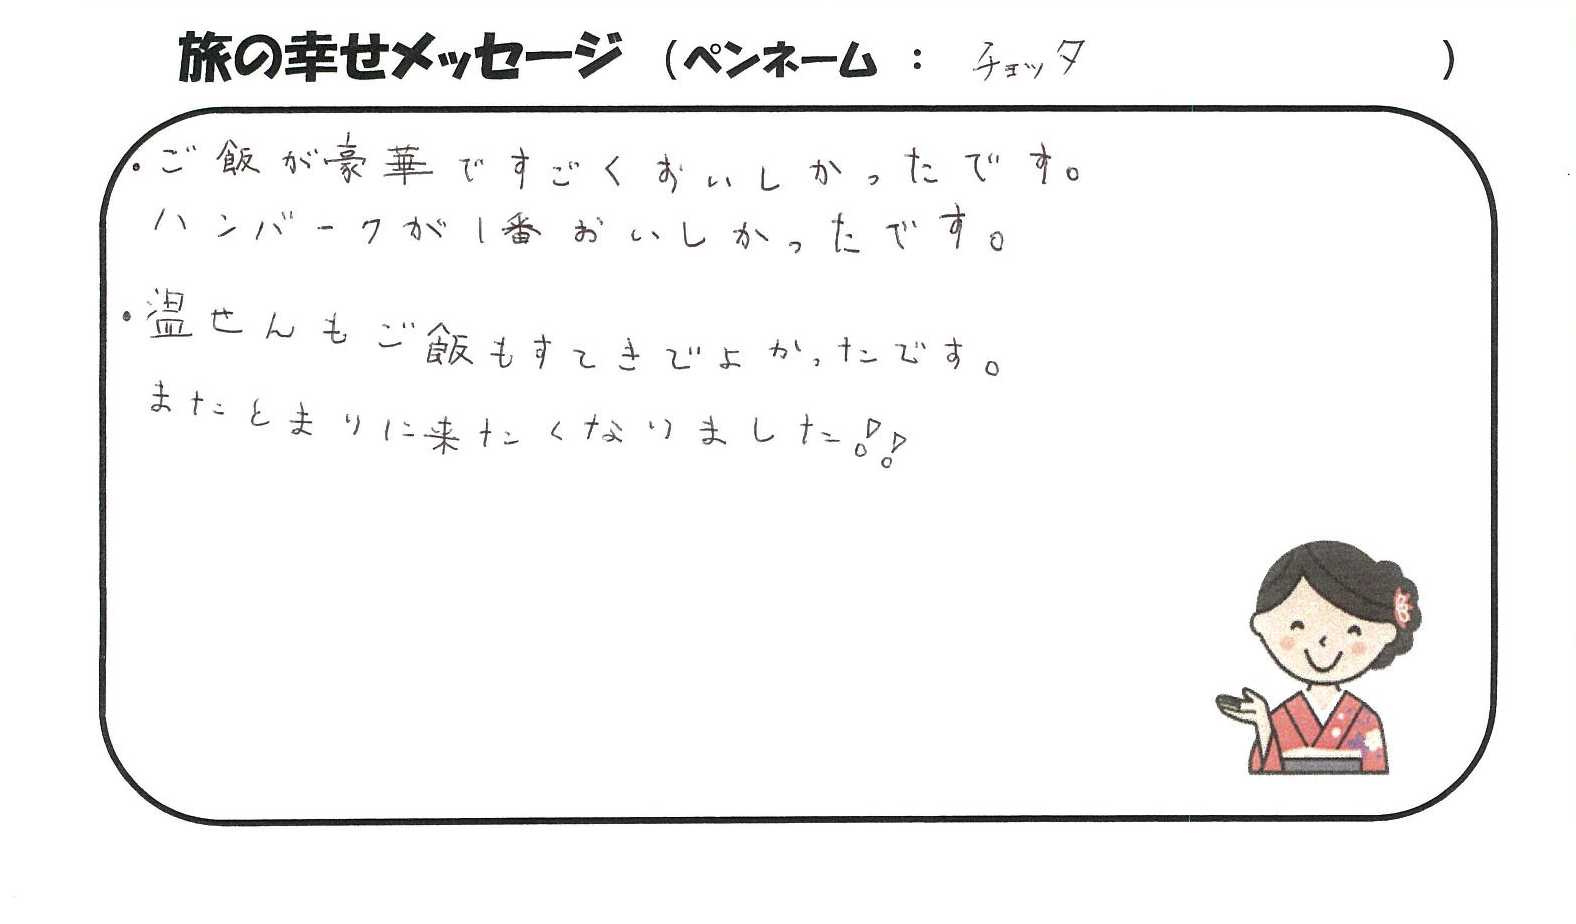 旅の幸せメッセージ (ペンネーム : チョッタ )
・ご飯が豪華ですごくおいしかったです。
ハンバークが1番おいしかったです。
・温せんもご飯もすてきでよかったです。
またとまりに来たくなりました!!